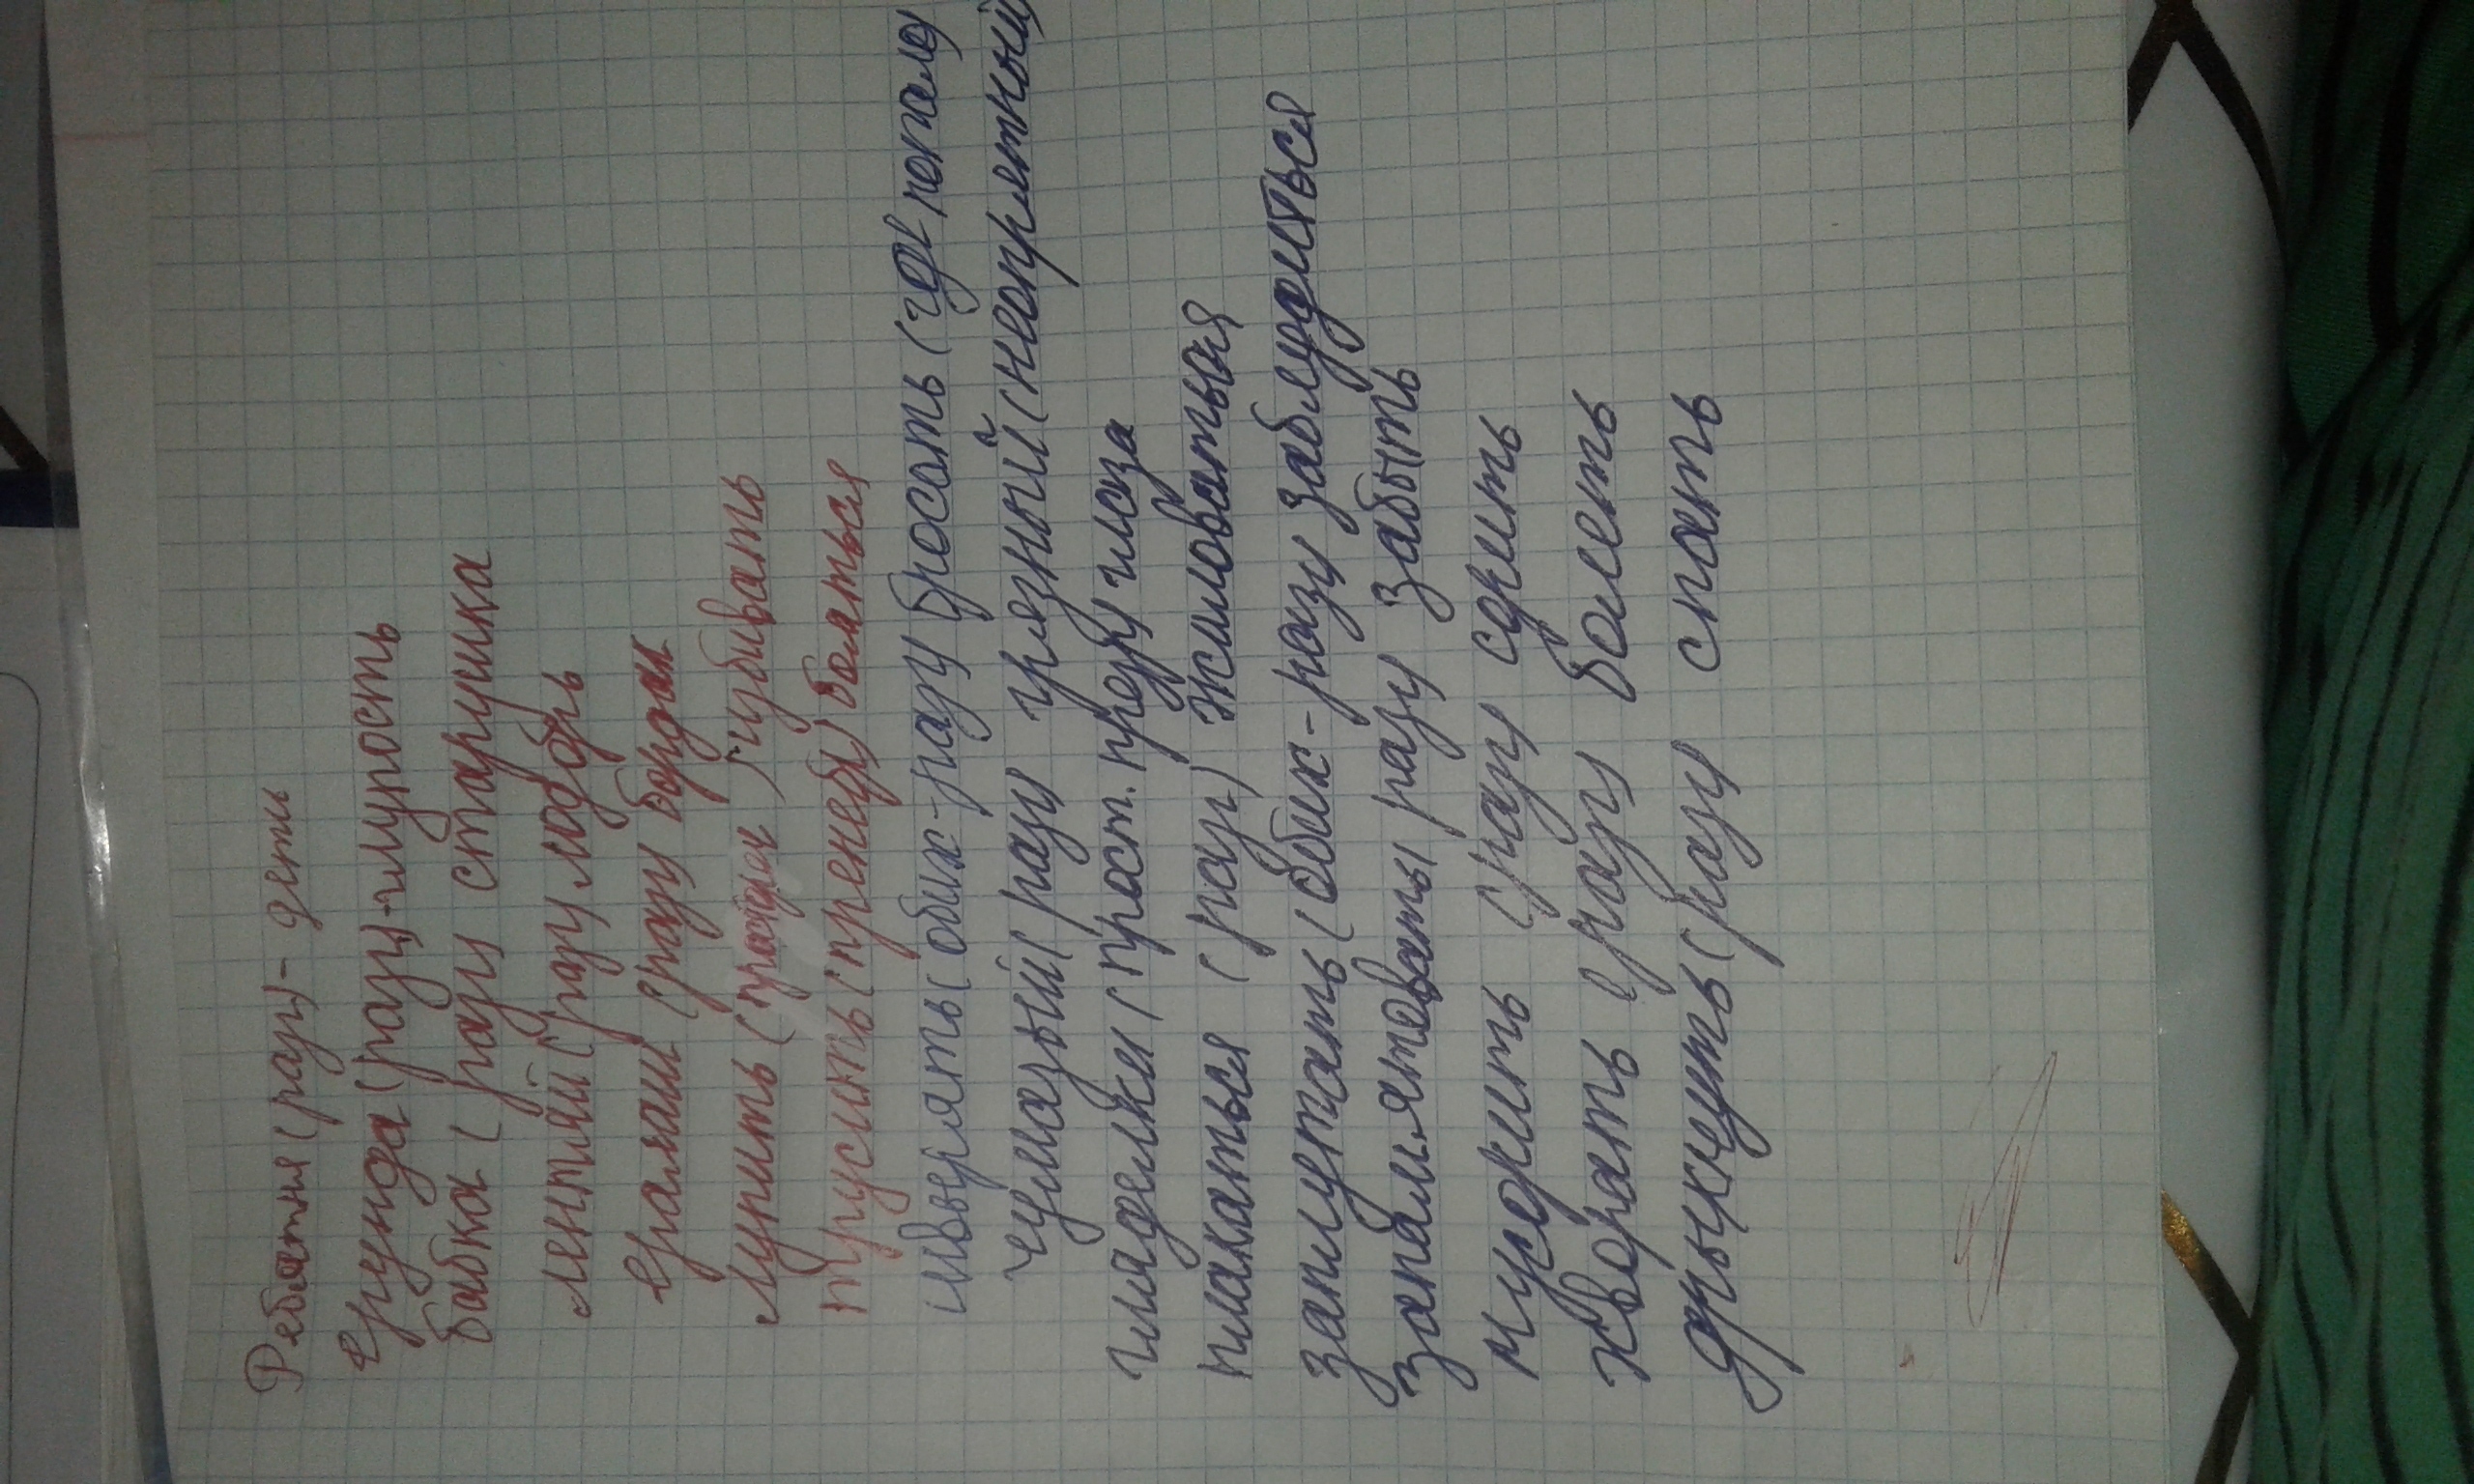 Ребятня (разг) - дети
ерунда (разг) - глупость
бабка (разг) старушка
лентяй (разг лодырь
ералаш (разг) бардак
лупить (простореч) избивать
трусить (пренебр) бояться
швырять (обих-разг бросать (
чумазый (разг грязный (неопрятный)
гляделки (прост. пребр глаза
плакаться (разг) жаловаться
заплутать (обих-разг заблудиться
запамятовать (разг забыть
мусорить (разг сорить
хворать (разг болеть
дрыхнуть (разг спать